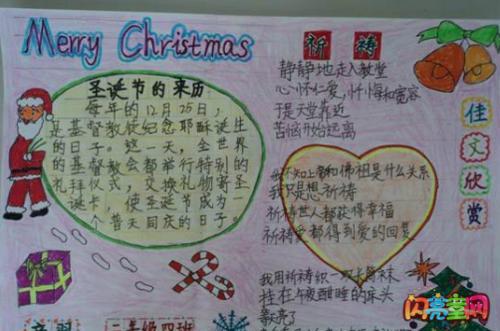 Merry Christmas
圣诞节的来历:
每年的12月25日，
是基督教徒纪念耶稣诞生
的日子。这一天，全世界
的基督教会都举行特别的
礼拜仪式，交换礼物寄圣
诞卡，使圣诞节成为一
个普天同庆的日子。
祈祷
静静地走入教堂
心怀仁爱，忏悔和宽容
于是天堂靠近
苦恼开始远离
我不知上帝和佛祖是什么关系
我只是想祈祷
祈祷世人都获得幸福
祈祷爱都得到爱的回复
我用祈祷织一双长筒袜
挂在午夜酣睡的床头
佳文欣赏
二年级四班
闪亮童网